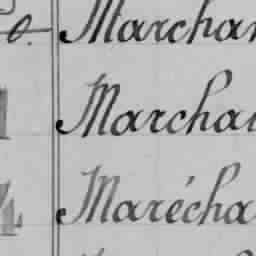 o. Marchan
Marcha
4 Marécha